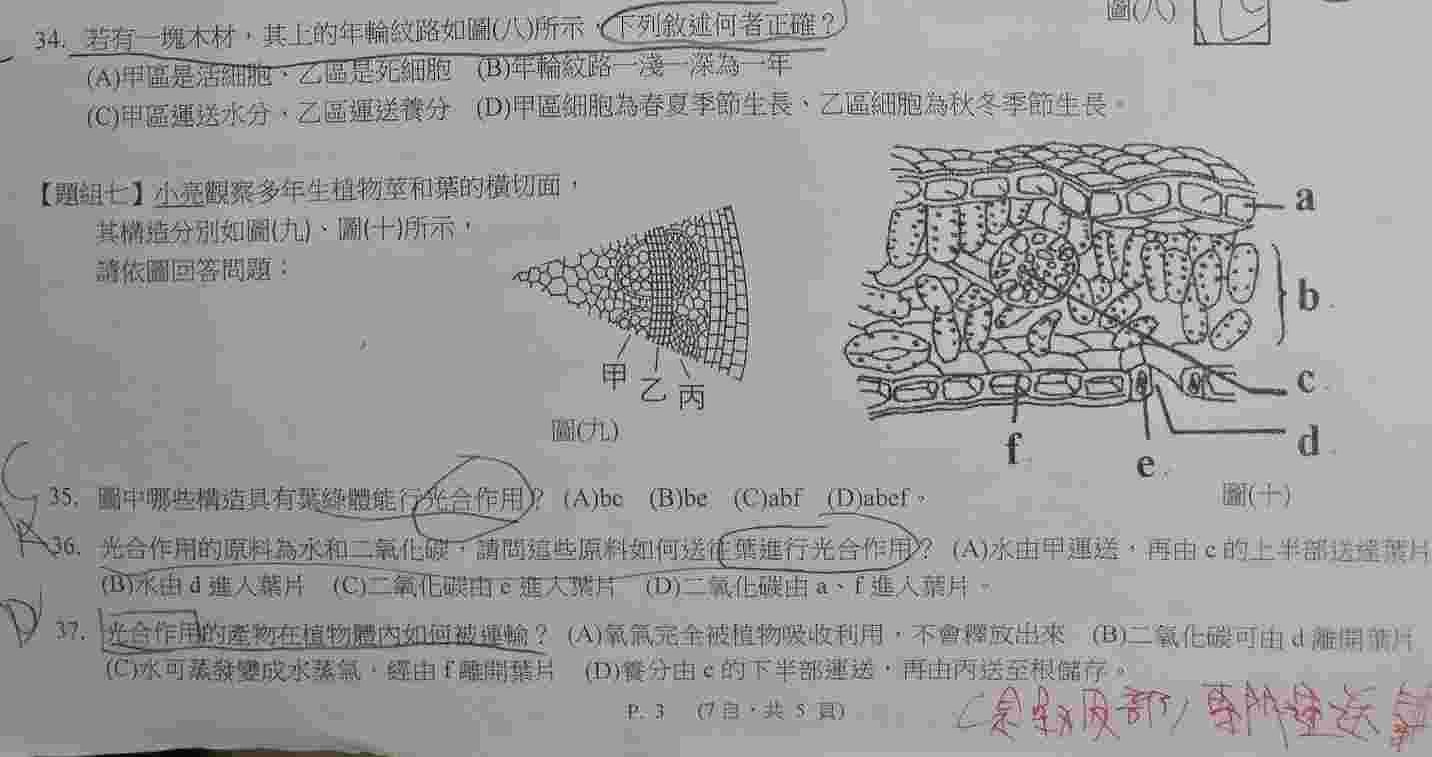 圖(八)
34. 若有一塊木材，其上的年輪紋路如圖(八)所示，下列敘述何者正確？
(A)甲區是活細胞、乙區是死細胞 (B)年輪紋路一淺一深為一年
(C)甲區運送水分，乙區運送養分 (D)甲區細胞為春夏季節生長、乙區細胞為秋冬季節生長。
【題組七】小亮觀察多年生植物莖和葉的橫切面，
其構造分別如圖(九)、圖(十)所示，
請依圖回答問題：
甲 乙 丙
圖(九)
a
b
c
d
e
f
圖(十)
C
35. 圖中哪些構造具有葉綠體能行光合作用？ (A)bc (B)be (C)abf (D)abef。
A
36. 光合作用的原料為水和二氧化碳，請問這些原料如何送往葉進行光合作用？ (A)水由甲運送，再由 c 的上半部送達葉片
(B)水由 d 進入葉片 (C)二氧化碳由 e 進入葉片 (D)二氧化碳由 a、f 進入葉片。
D
37. 光合作用的產物在植物體內如何被運輸？ (A)氧氣完全被植物吸收利用，不會釋放出來 (B)二氧化碳可由 d 離開葉片
(C)水可蒸發變成水蒸氣，經由 f 離開葉片 (D)養分由 c 的下半部運送，再由丙送至根儲存。
P. 3 (7自，共 5 頁)